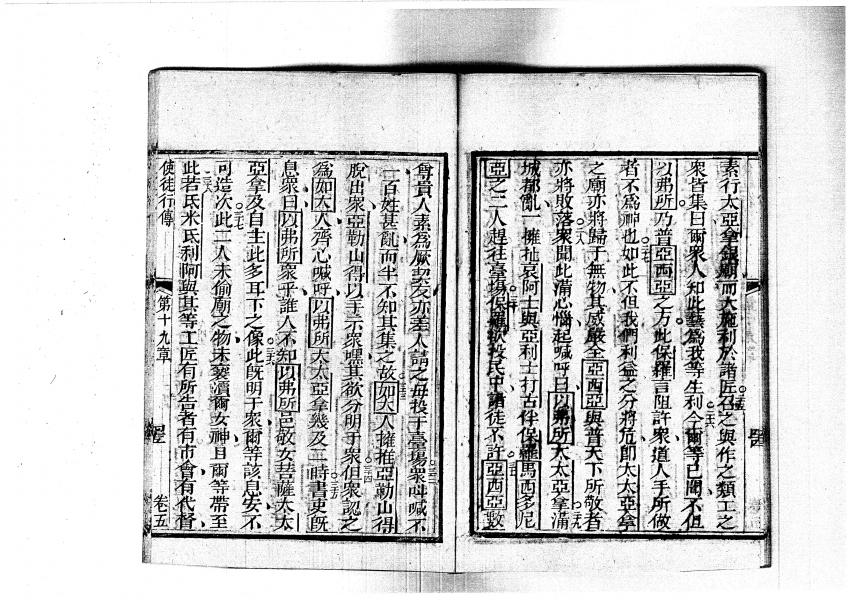 素行太亞拿銀廟而大施利於諸匠召之與作之類工之
衆皆集曰爾衆人知此藝爲我等生利今爾等已聞不但
以弗所乃普亞西亞之方此保羅言阻許衆道人手所做
者不爲神也如此不但我們利益之分將危卽太太亞拿
之廟亦將歸于無物其威嚴全亞西亞與普天下所敬者
亦將敗落衆聞此滿心惱起喊呼曰以弗所太太亞拿滿
城都亂一擁扯哀阿士與亞利士打古伴保羅馬西多尼
亞之二人趕往臺場保羅欲投民中諸徒不許亞西亞數
尊貴人素爲厥契友亦差人請之毋投于臺場衆呌喊不
一百姓甚亂而半不知其集之故如大人擁推亞勒山得
脫出衆亞勒山得以手示衆嘿其欲分明于衆但衆認之
爲如大人齊心喊呼以弗所太太亞拿幾及二時書吏旣
息衆曰以弗所衆乎誰人不知以弗所邑敬女菩薩太太
亞拿及自主此多耳下之像此旣明于衆爾等該息安不
可造次此二人未偷廟之物未褻瀆爾女神且爾等帶至
此若氐米氐利阿與其等工匠有所告者有市會有代督
使徒行傳
第十九章
卷五